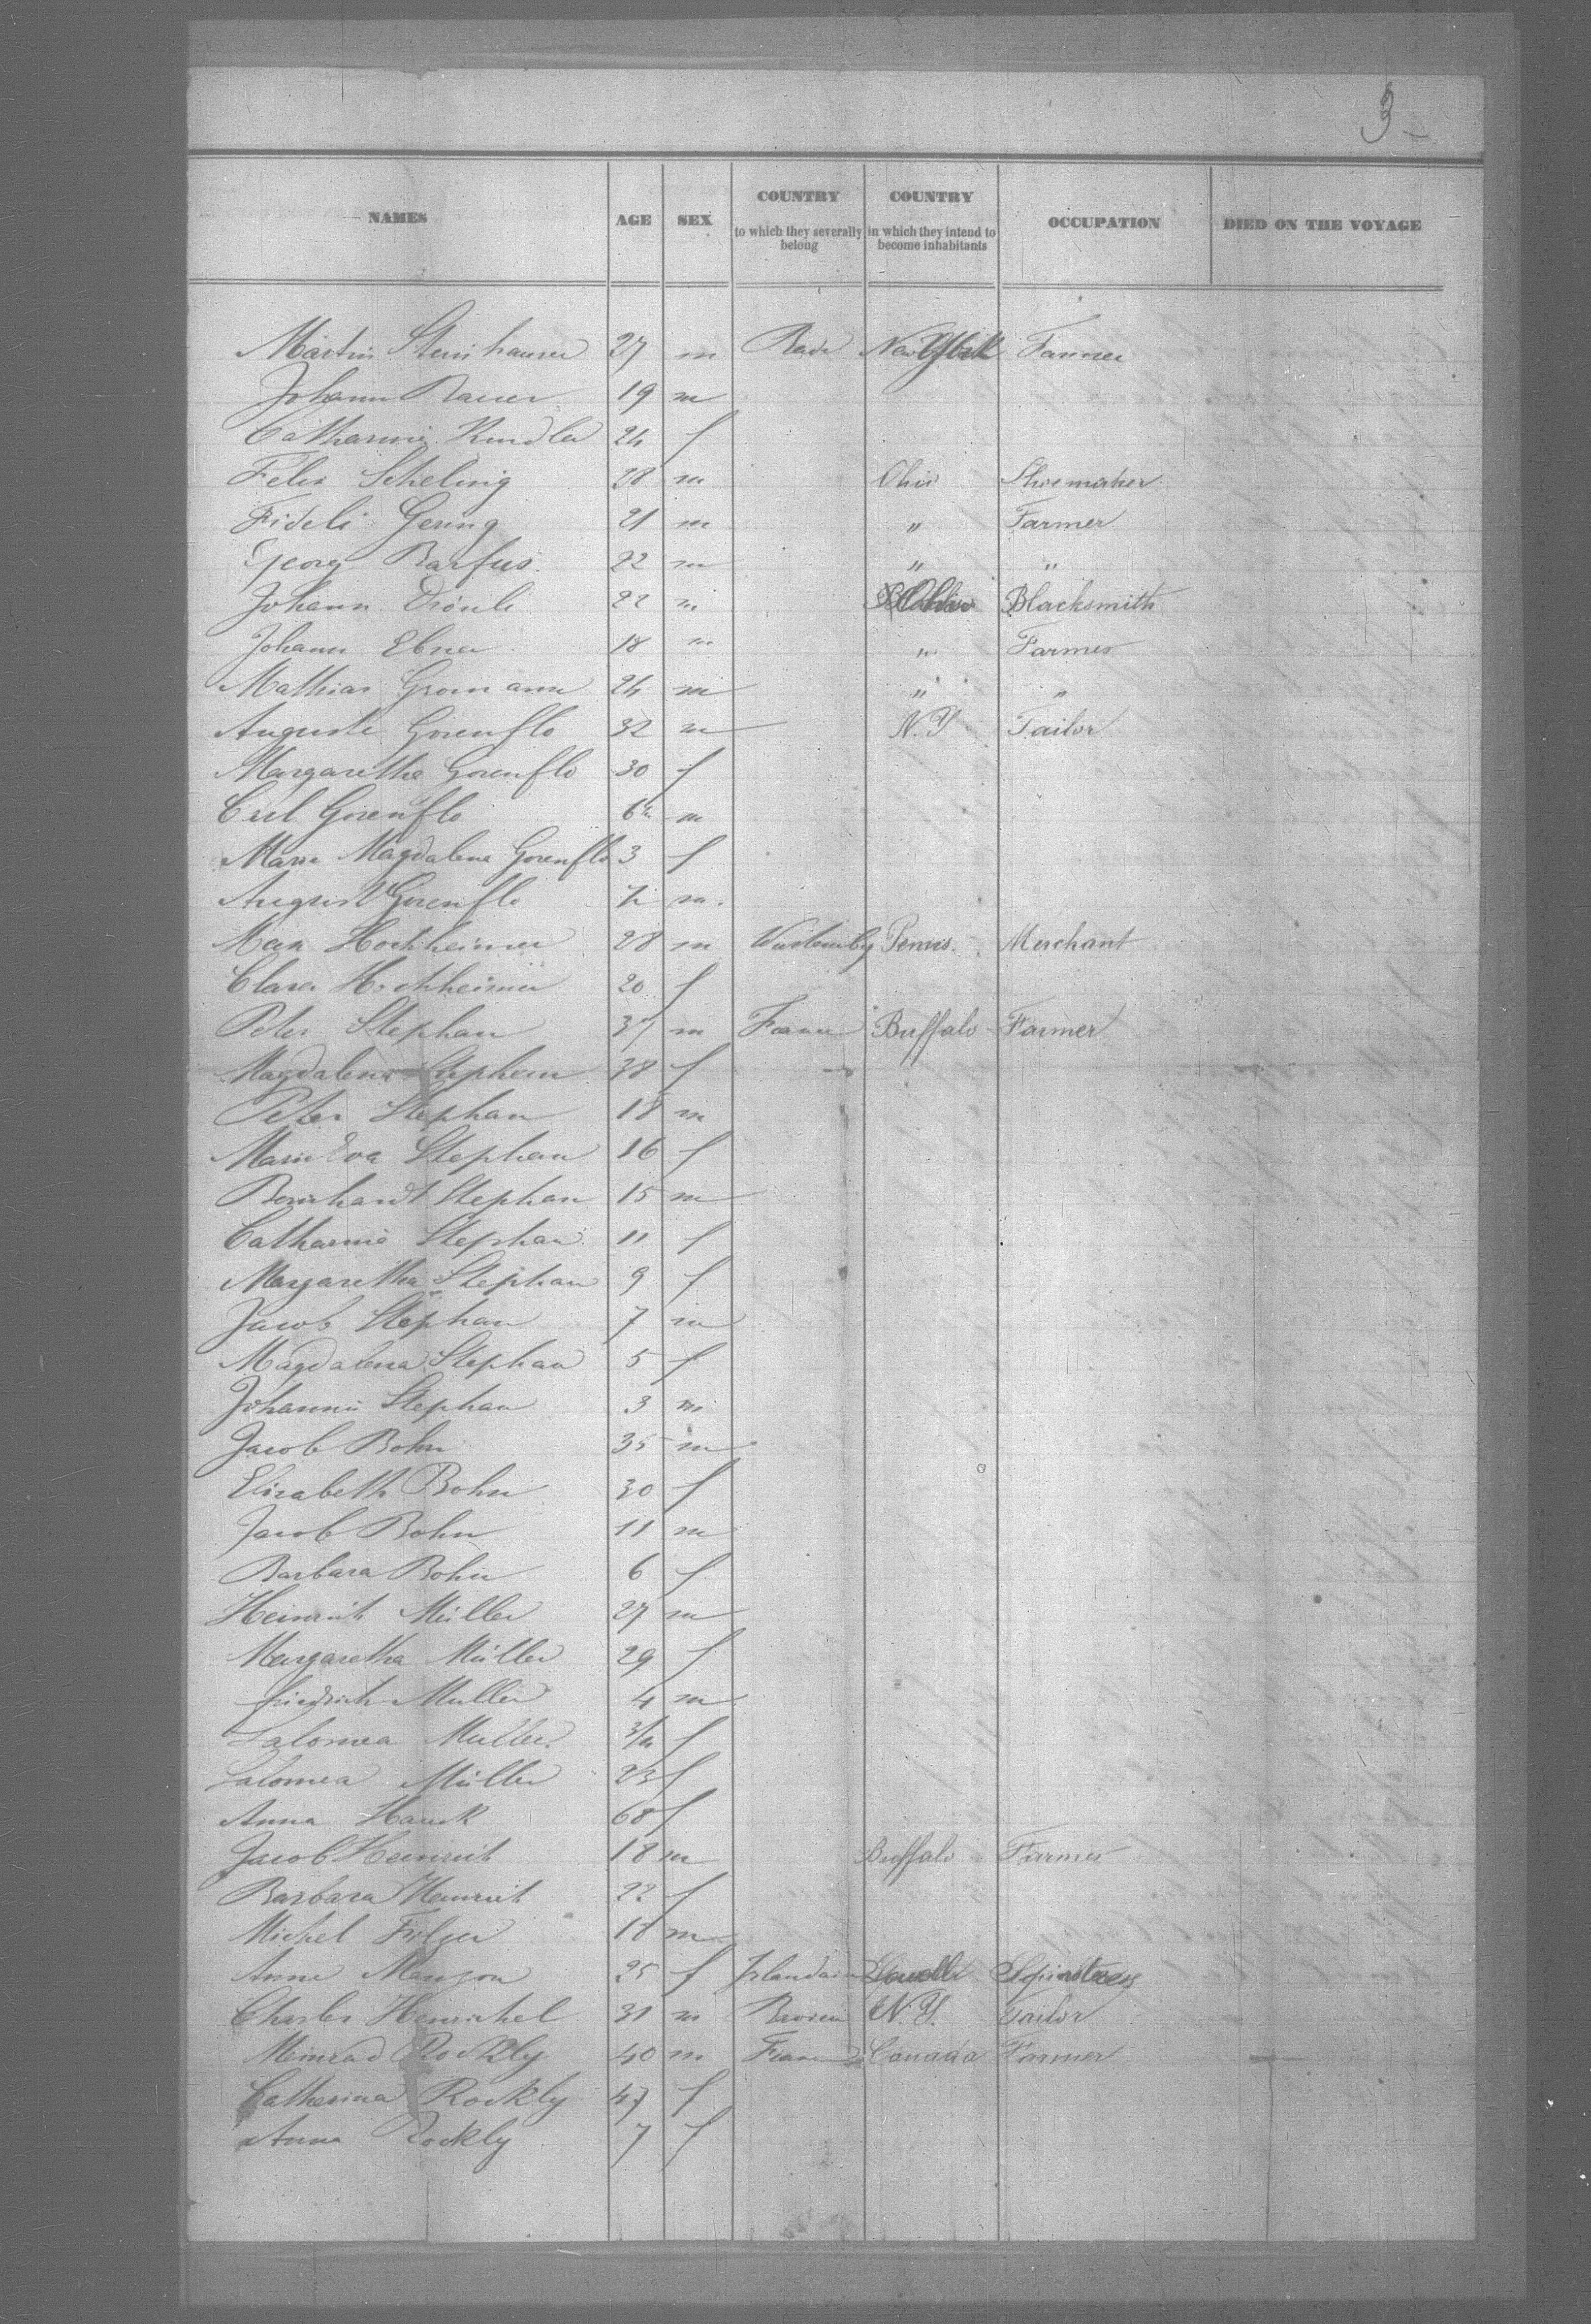 3
NAMES AGE SEX COUNTRY to which they severally belong COUNTRY in which they intend to become inhabitants OCCUPATION DIED ON THE VOYAGE
Martin Steinhauser 27 m Bade New York Farmer
Johann Bauer 19 m
Catharina Kindler 24 f
Felix Scheling 28 m Ohio Shoemaker
Fideli Gering 21 m " Farmer
Georg Barfus 22 m " "
Johann 22 m Ohio Blacksmith
Johann Ebner 18 m " Farmer
Mathias Gromann 24 m " "
Auguste Gorenflo 32 m N.Y Tailor
Margaretha Gorenflo 30 f
Carl Gorenflo 6 m
Marie Magdalena Gorenflo 3 f
August Gorenflo m.
Max Hochheimer 28 m Wurtemberg Penns. Merchant
Clara Hochheimer 20 f
Peter Stephan 37 m France Buffalo Farmer
Magdalena Stephan 38 f
Peter Stephan 18 m
Marie Eva Stephan 16 f
Bernhardt Stephan 15 m
Catharina Stephan 11 f
Margaretha Stephan 9 f
Jacob Stephan 7 m
Magdalena Stephan 5 f
Johannis Stephan 3 m
Jacob Bohn 35 m
Elisabeth Bohn 30 f
Jacob Bohn 11 m
Barbara Bohn 6 f
Heinrich Müller 27 m
Margaretha Müller 29 f
Friedrich Muller 4 m
Salomea Muller 3/4 f
Salomea Müller 23 f
Anna Hauck 68 f
Jacob Heinrich 18 m Buffalo Farmer
Barbara Heinrich 22 f
Michel 18 m
Anne Mangon 25 f Spinster
Charles Heinrichel 31 m N.Y. Tailor
Meinrad Rockly 40 m France Canada Farmer
Catherina Rockly 47 f
Anna Rockly 7 f